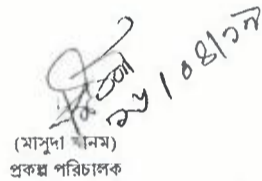 ২৮/০৪/১৯
(মাসুদা খানম)
প্রকল্প পরিচালক